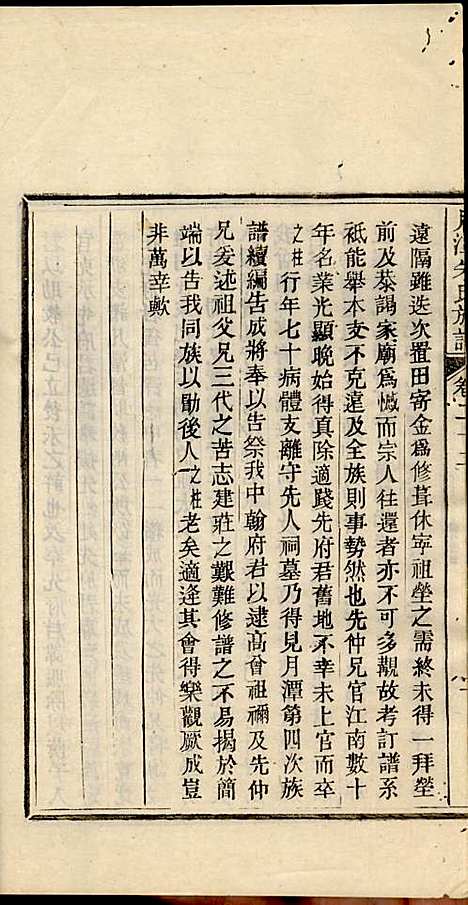 月潭朱氏族譜 卷
遠隔雖迭次置田寄金為修葺休寧祖塋之需終未得一拜塋
前及恭謁家廟為憾而宗人往還者亦不可多覯故考訂譜系
祇能舉本支不克遠及全族則事勢然也先仲兄官江南數十
年名業光顯晚始得真除適踐先府君舊地不幸未上官而卒
之柱行年七十病體支離守先人祠墓乃得見月潭第四次族
譜續編告成將奉以告祭我中翰府君以逮高曾祖禰及先仲
兄爰述祖父兄三代之苦志建莊之艱難修譜之不易揭於簡
端以告我同族以勖後人之柱老矣適逢其會得樂觀厥成豈
非萬幸歟